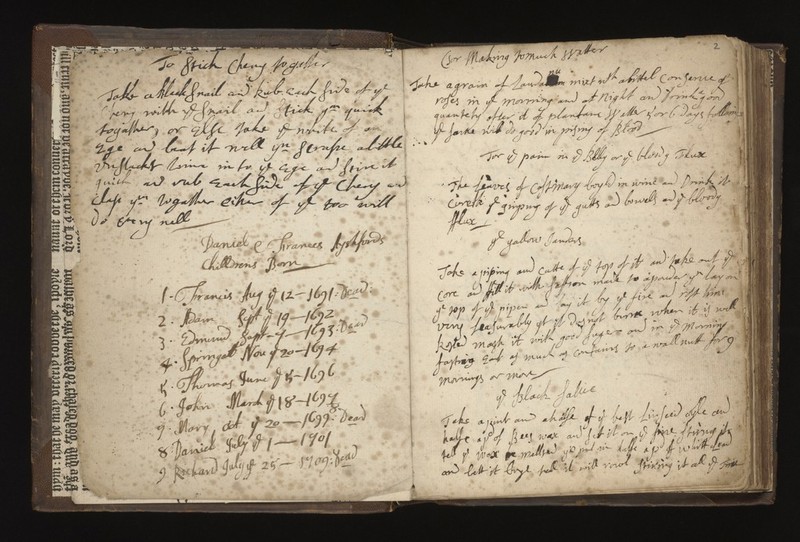 To Stick Cheny together
Take a black Snail and Rub Each Side of ye
Cheny with ye Snail and Stick ym quick
together, or Else Take ye white of an
Egg and beat it well yn Scrape a little
unslackt Lime in to ye Egg and Stire it
quick and rub Each Side of ye Cheny and
Clap ym together Either of ye too will
do Every well
Daniel & Frances
Childrens Born
1. Francis Aug ye 12 - 1691. Dead
2. Adam Sept ye 19 - 1692
3. Edmund Sept - 4 - 1693. Dead
4. Springatt Nov ye 20 - 1694
5. Thomas June ye 5 - 1696
6. John March ye 18 - 1697
7. Mary Oct ye 20 - 1699. Dead
8 Daniel July ye 1 - 1701
9 Richard July ye 25 - 1709. Dead
2
For Making to much Watter
Take a grain of mixt wth a littel Conserve of
roses in ye morning and at Night and Drink good
quantety after it of plantane Watter 4 or 6 Days
ye Same will do good in pising of Blood
For ye paine in ye Belly or ye blody Flux
The Leaves of Costmary boyld in wine and Drink it
Cureth ye griping of ye gutts and bowels and ye bloody
Fflux
ye yallow Janders
Take a piping and Cutte of ye top of it and take out ye
Core and fill it with Safron made to a powder yn lay on
ye top of ye pipen and lay it by ye fire and rost him
very Leasurably yt it do not burne when it is well
Rosted mash it with good Suger and in ye Morning
fasting Eat as much as contains to a wall nutt for 9
mornings or more
ye Black Salve
Take a pint and a halfe of ye best Linseed oyle and
halfe a pd of Bees wax and Set it on ye fire Stiring it
tell ye wax be melted yn put in halfe a pd of Whitt Lead
and lett it Boyle tell it will rowl Stiring it all ye